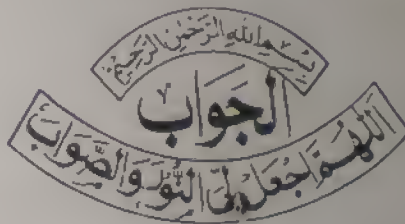 بِسْمِ اللهِ الرَّحْمٰنِ الرَّحِيْمِ
الجَوَابُ
اَللّٰهُمَّ اجْعَلْ لِّیَ النُّوْرَ وَالصَّوَابَ